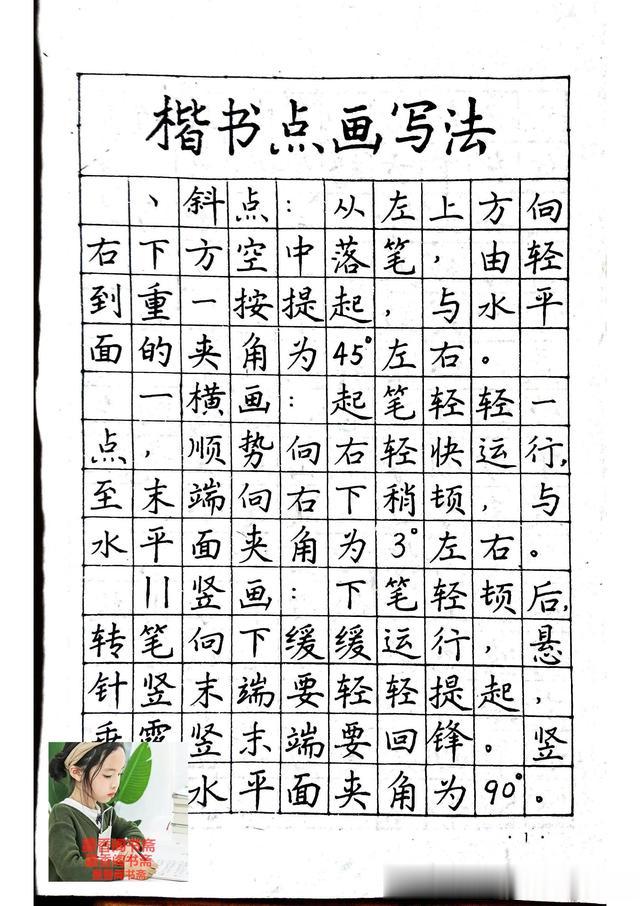 楷书点画写法
丶斜点：从左上方向
右下方空中落笔，由轻
到重一按提起，与水平
面的夹角为45°左右。
一横画：起笔轻轻一
点，顺势向右轻快运行，
至末端向右下稍顿，与
水平面夹角为3°左右。
丨丨竖画：下笔轻顿后，
转笔向下缓缓运行，悬
针竖末端要轻轻提起，
垂露竖末端要回锋。竖
水平面夹角为90°。
·1·
书斋
书斋
书斋